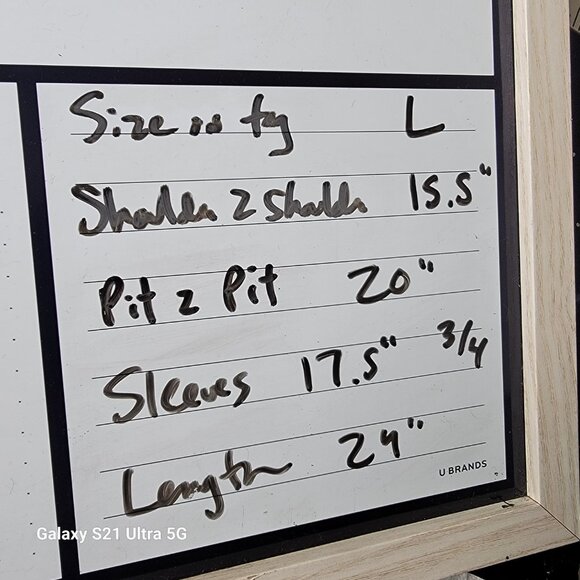 Size in tag L
Shoulder 2 Shoulder 15.5"
Pit 2 Pit 20"
Sleeves 17.5" 3/4
Length 24"
U BRANDS
Galaxy S21 Ultra 5G